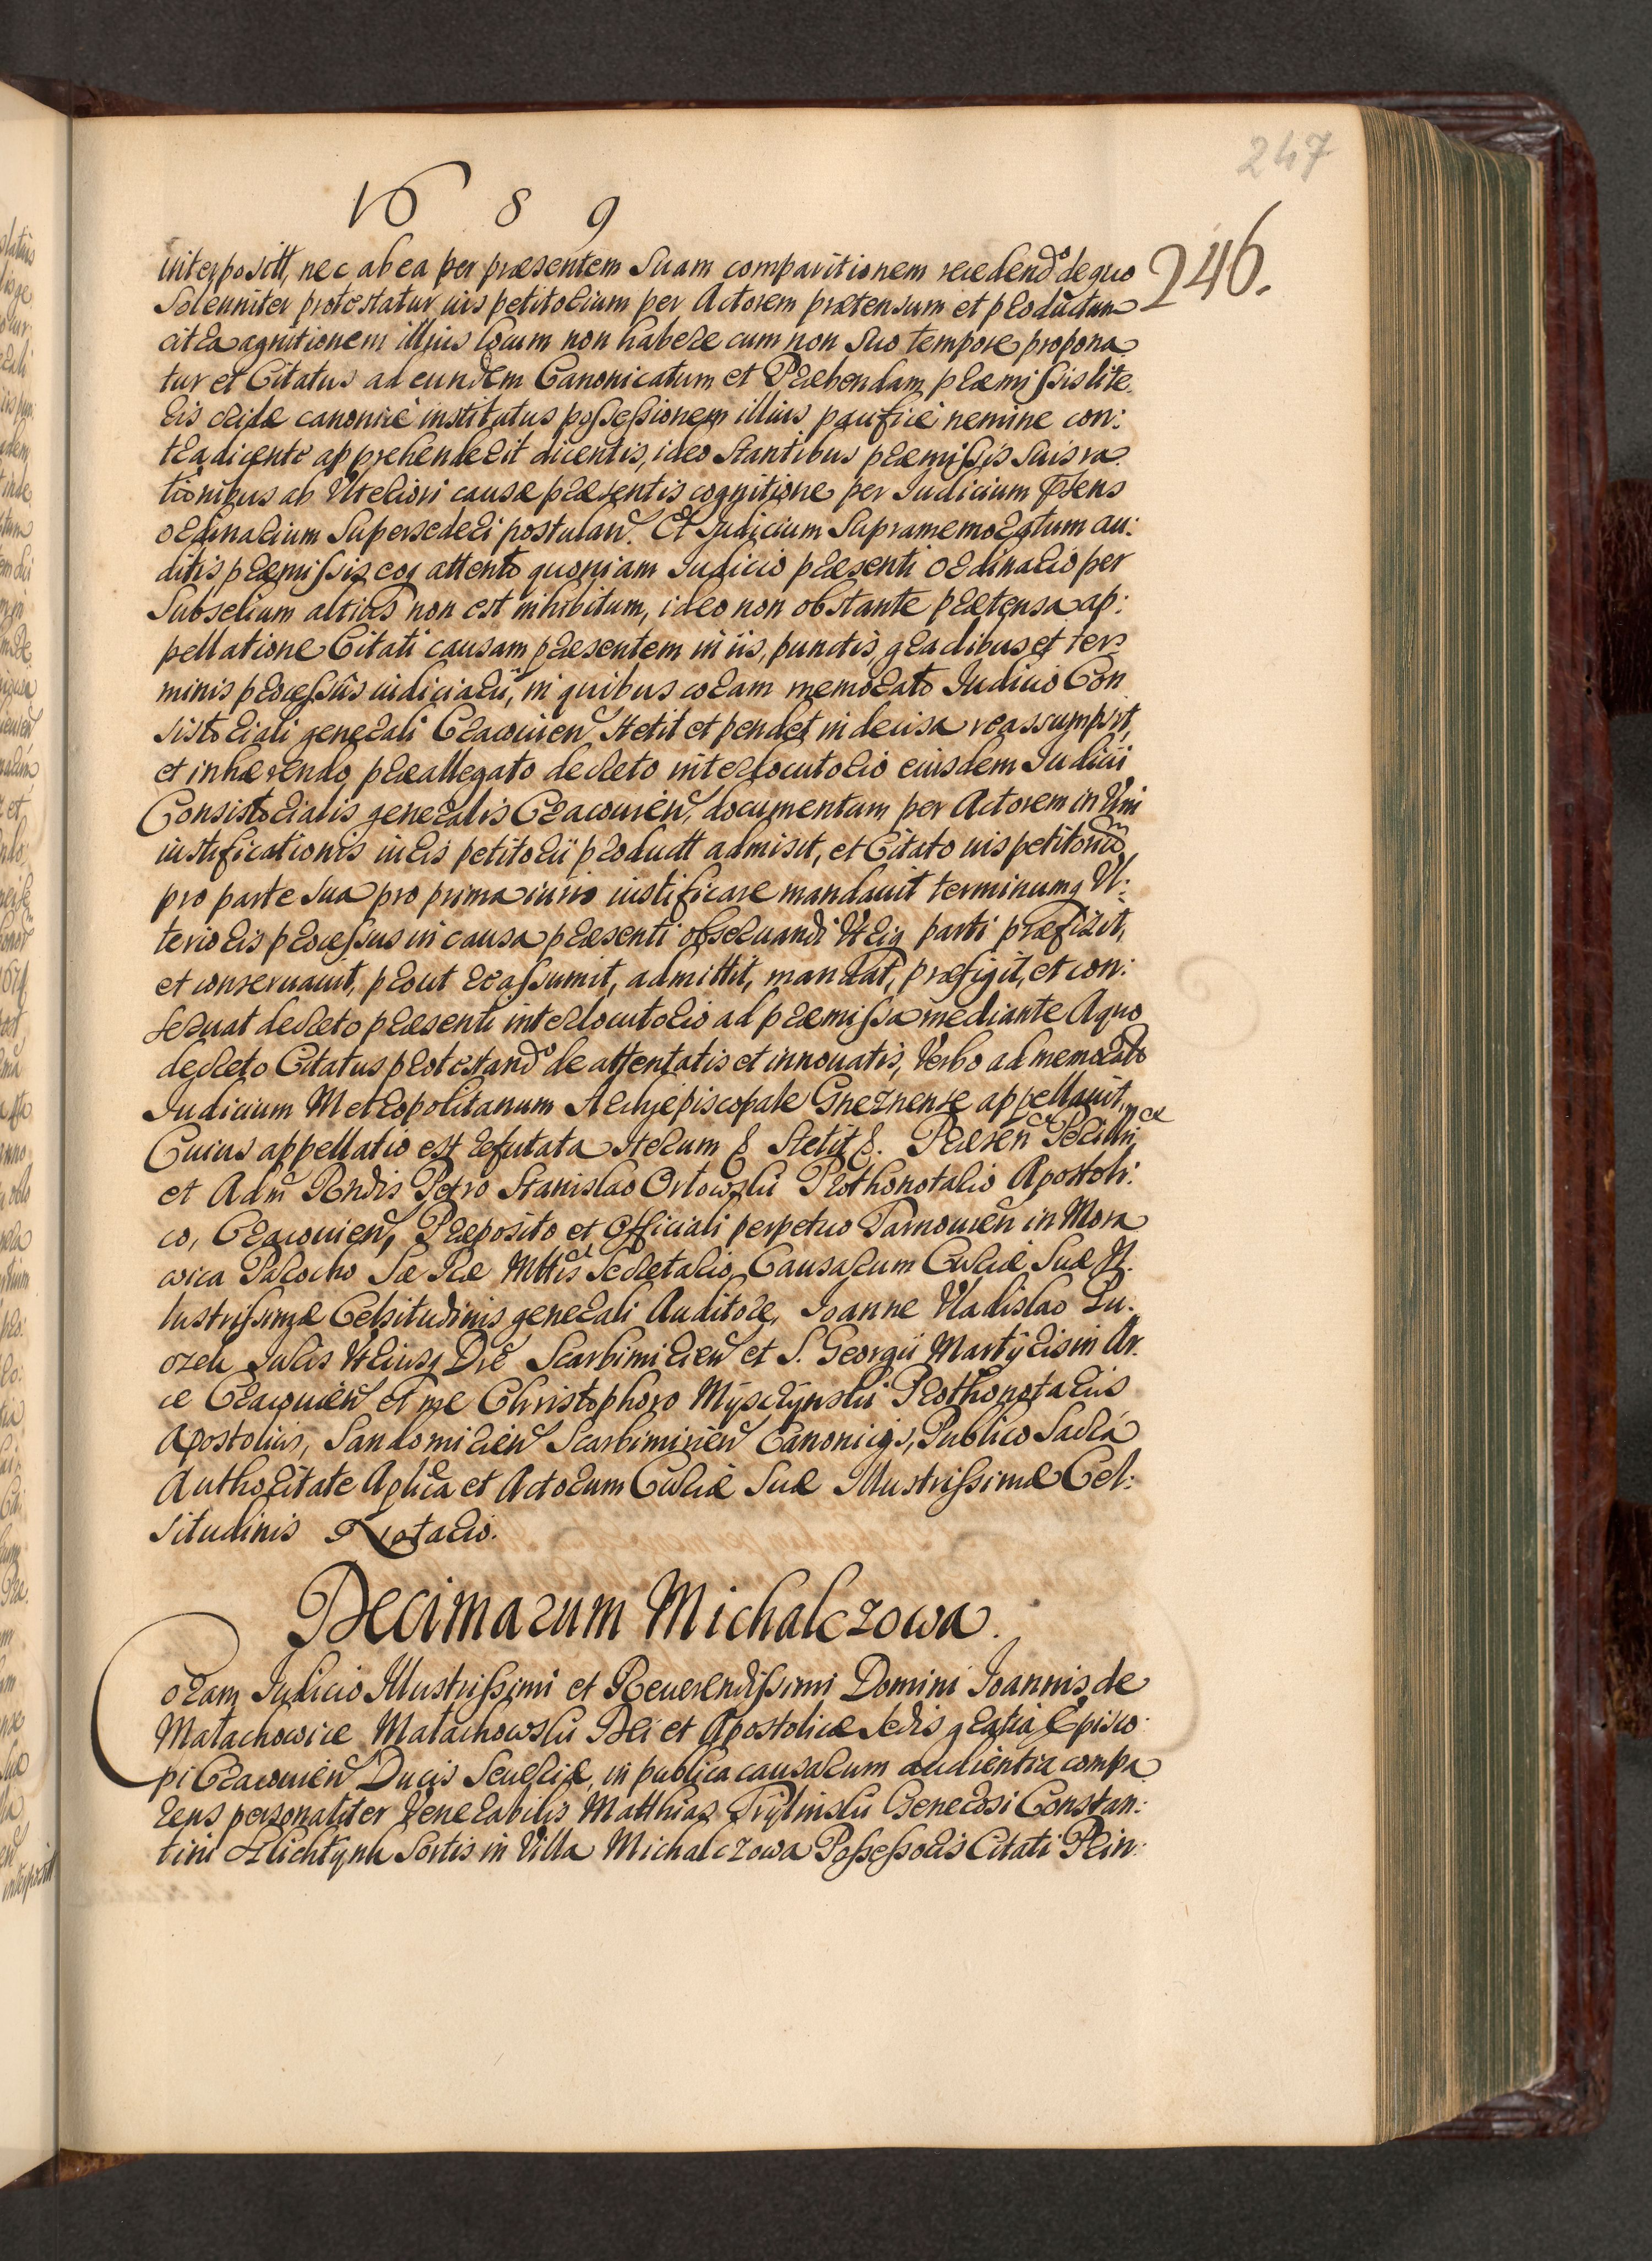 247
1689
246.
interpositt, nec ab ea per præsentem suam comparitionem recedendo de quo
Solenniter protestatur ius petitorium per Actorem prætensum et productum
citra agnitionem illius locum non habere cum non suo tempore propona
tur et Citatus ad eundem Canonicatum et Præbendam præmissis lite
ris rite canonice institutus possessionem illius pacifice nemine con:
tradicente apprehenderit dicentis, ideo stantibus præmissis suis ra
tionibus ab Ulteriori causæ præsentis cognitione per Iudicium præsens
ordinarium Supersederi postulavit. Et Iudicium Supramemoratum au:
ditis præmissis eoq attento quoniam Iudicio præsenti ordinario per
Subselium altius non est inhibitum, ideo non obstante prætensa ap:
pellatione Citati causam præsentem in iis, punctis, gradibus et ter
minis processus iudiciarii, in quibus coram memorato Iudicio Con
sistoriali generali Cracouien stetit et pendet indecisa reassumpsit,
et inhærendo præallegato decreto interlocutorio eiusdem Iudicii
Consistorialis generalis Cracouien, documentum per Actorem in Vim
iustificationis iuris petitorii productt admisit, et Citato ius petitorium
pro parte sua pro prima iuris iustificare mandauit terminumq Ul:
terioris processus in causa præsenti obseruandi Utriq parti præfixit,
et conseruauit, prout reassumit, admittit, mandat, præfigit, et con:
seruat decreto præsenti interlocutorio ad præmissa mediante A quo
decreto Citatus protestando de attentatis et innouatis, Verbo ad memorato
Iudicium Metropolitanum Archiepiscopale Gneznense appellauit,
Cuius appellatio est refutata iterum & Stetit &. Præsen Perillri
et Adm Rndis Petro Stanislao Orłowski Prothonotario Apostoli:
co, Cracouien, Præposito et Officiali perpetuo Tarnouien in Mora
wica Parocho Sæ Ræ Mttis Secretario Causarum Curiæ Suæ Il
lustrissimæ Celsitudinis generali Auditore, Ioanne Vladislao Lu:
orek Iuris Utriusq Dre Scarbimirien et S. Georgii Martyris in Ar
ce Cracouien et me Christophoro Myszynski Prothonotariis
Apostolicis, Sandomirien Scarbimirien Canonicis, Publico Sacra
Authoritate Aplica et Actorum Curiæ Suæ Illustrissimæ Cel:
situdinis Notario.
Decimarum Michalczowa.
Coram Iudicio Illustrissimi et Reuerendissimi Domini Ioannis de
Małachowice Małachowski Dei et Apostolicæ Sedis gratia Episco
pi Cracouien Ducis Seueriæ, in publica causarum audientia compa
rens personaliter Venerabilis Matthias Trylinski Generosi Constan:
tini Sortis in Villa Michalczowa Possessoris Citati Prin: